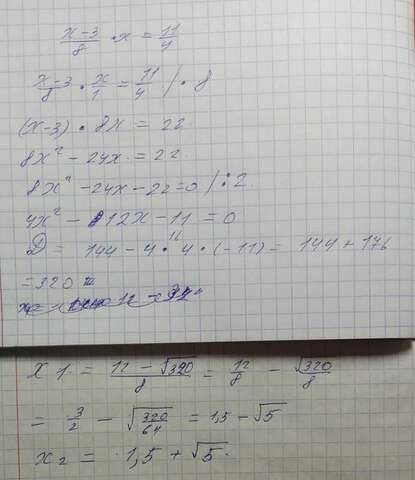 x-3/8 · x = 11/4
x-3/8 · x/1 = 11/4 / · 8
(x-3) · 8x = 22
8x² - 24x = 22
8x² - 24x - 22 = 0 / : 2
4x² - 12x - 11 = 0
D = 144 - 4 · 4 · (-11) = 144 + 176
= 320
x1 = 12 - √320/8 = 12/8 - √320/8
= 3/2 - √320/64 = 1,5 - √5
x2 = 1,5 + √5